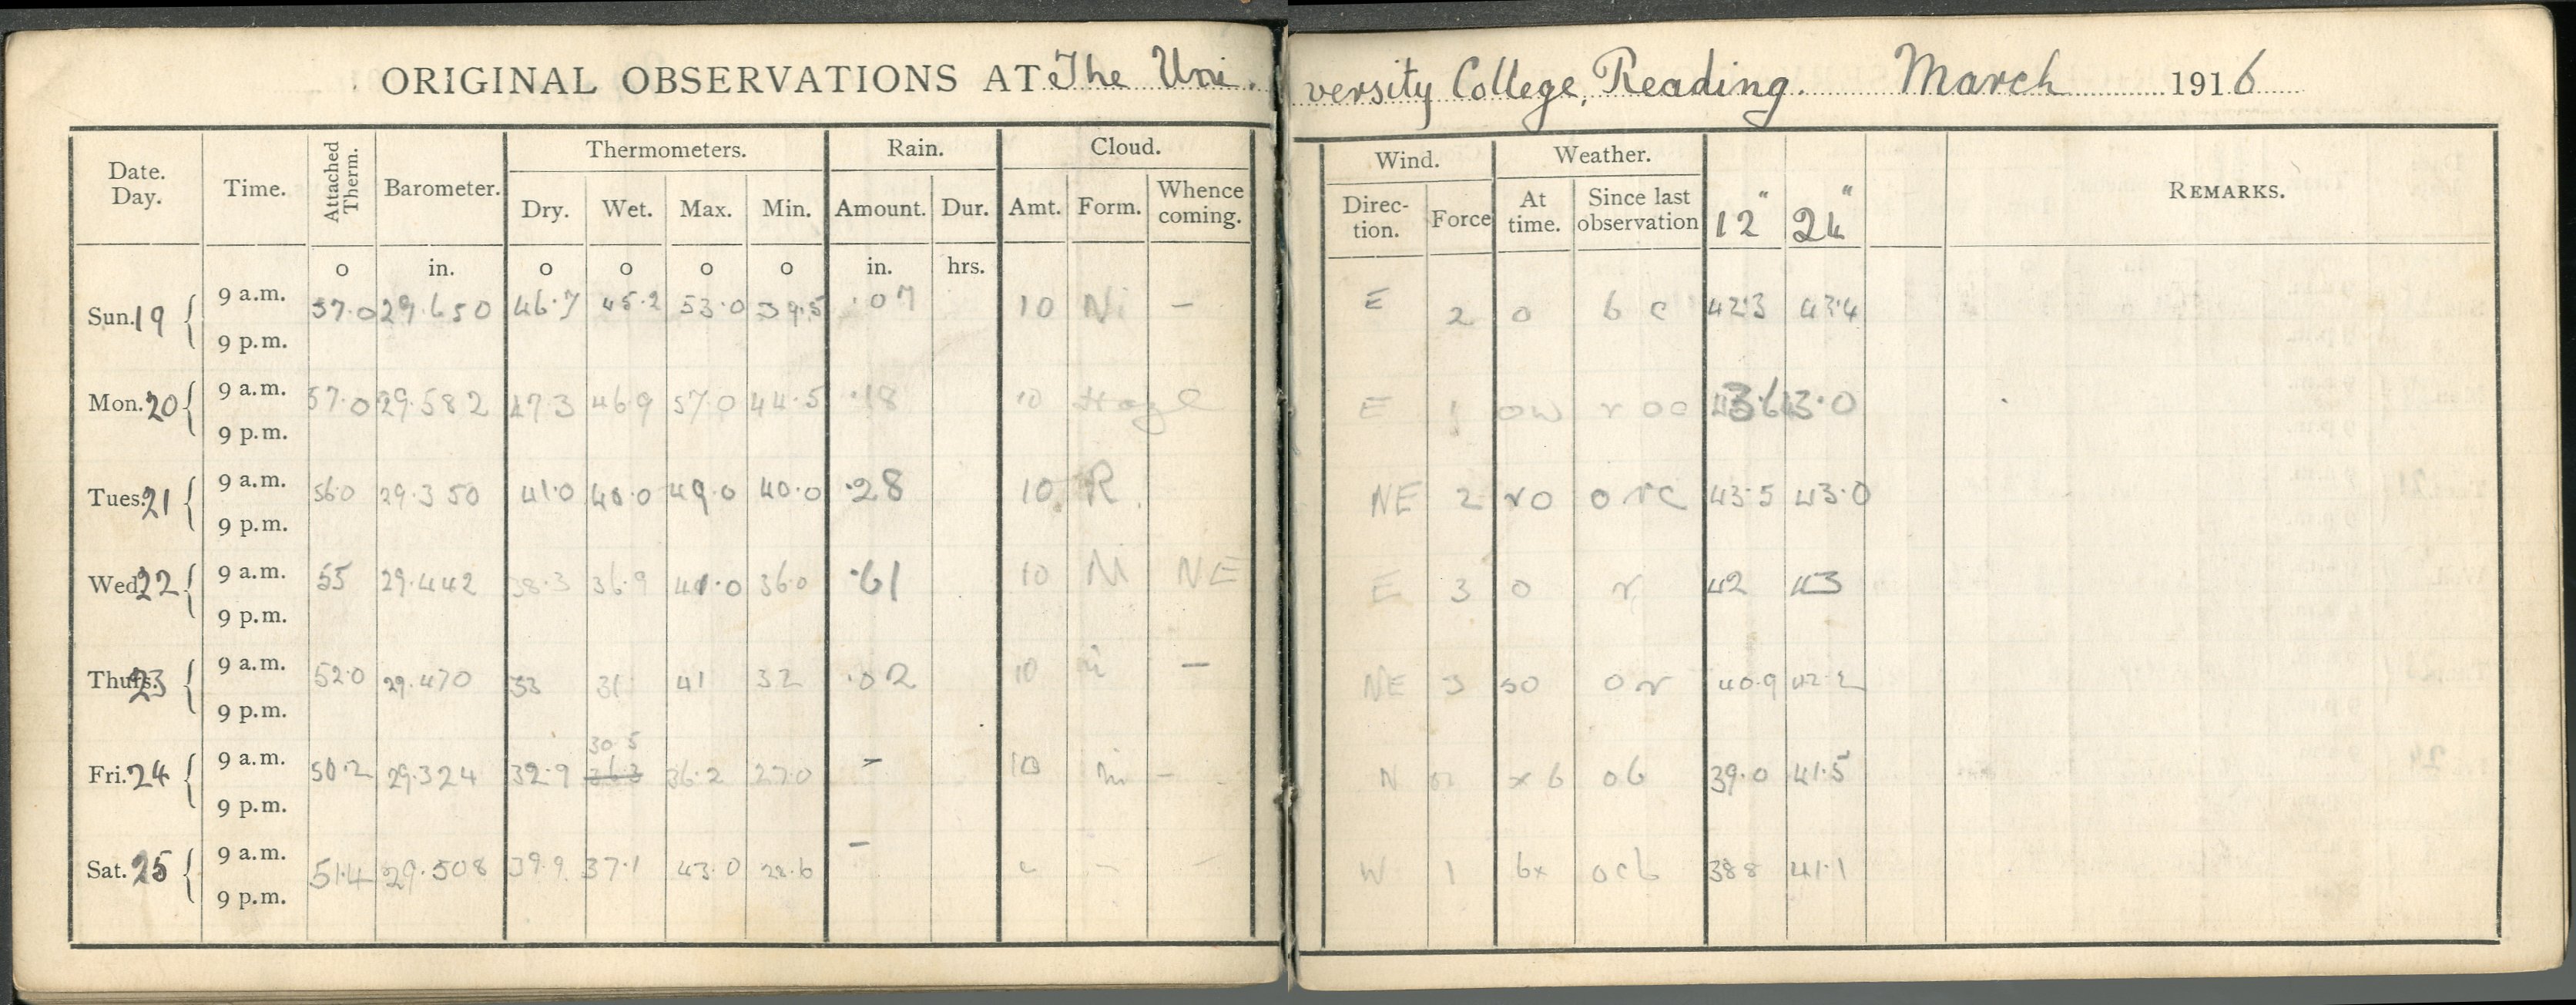 ORIGINAL OBSERVATIONS AT The Uni. versity College, Reading. March 1916
Date. Day. Time. Attached Therm. Barometer. Thermometers. Rain. Cloud. Wind. Weather. 12" 24" REMARKS.
Dry. Wet. Max. Min. Amount. Dur. Amt. Form. Whence coming. Direc-tion. Force At time. Since last observation
o in. o o o o in. hrs.
Sun. 19 9 a.m. 57.0 29.650 46.7 45.2 53.0 39.5 .07 10 Ni — E 2 o b c 42.3 43.4
9 p.m.
Mon. 20 9 a.m. 57.0 29.582 47.3 46.9 57.0 44.5 .18 10 Haze E 1 ow r o c 43.6 43.0
9 p.m.
Tues. 21 9 a.m. 56.0 29.350 41.0 40.0 49.0 40.0 .28 10 R. NE 2 ro o r c 43.5 43.0
9 p.m.
Wed. 22 9 a.m. 55 29.442 38.3 36.9 41.0 36.0 .61 10 NE E 3 o r 42 43
9 p.m.
Thurs. 23 9 a.m. 52.0 29.470 33 31 41 32 .02 10 ni — NE 3 so o r 40.9 42.2
9 p.m.
30.5
Fri. 24 9 a.m. 50.2 29.324 32.9 36.3 36.2 27.0 — 10 ni — N x b o b 39.0 41.5
9 p.m.
Sat. 25 9 a.m. 51.4 29.508 39.9 37.1 43.0 28.6 — — — W 1 bx o c b 38.8 41.1
9 p.m.